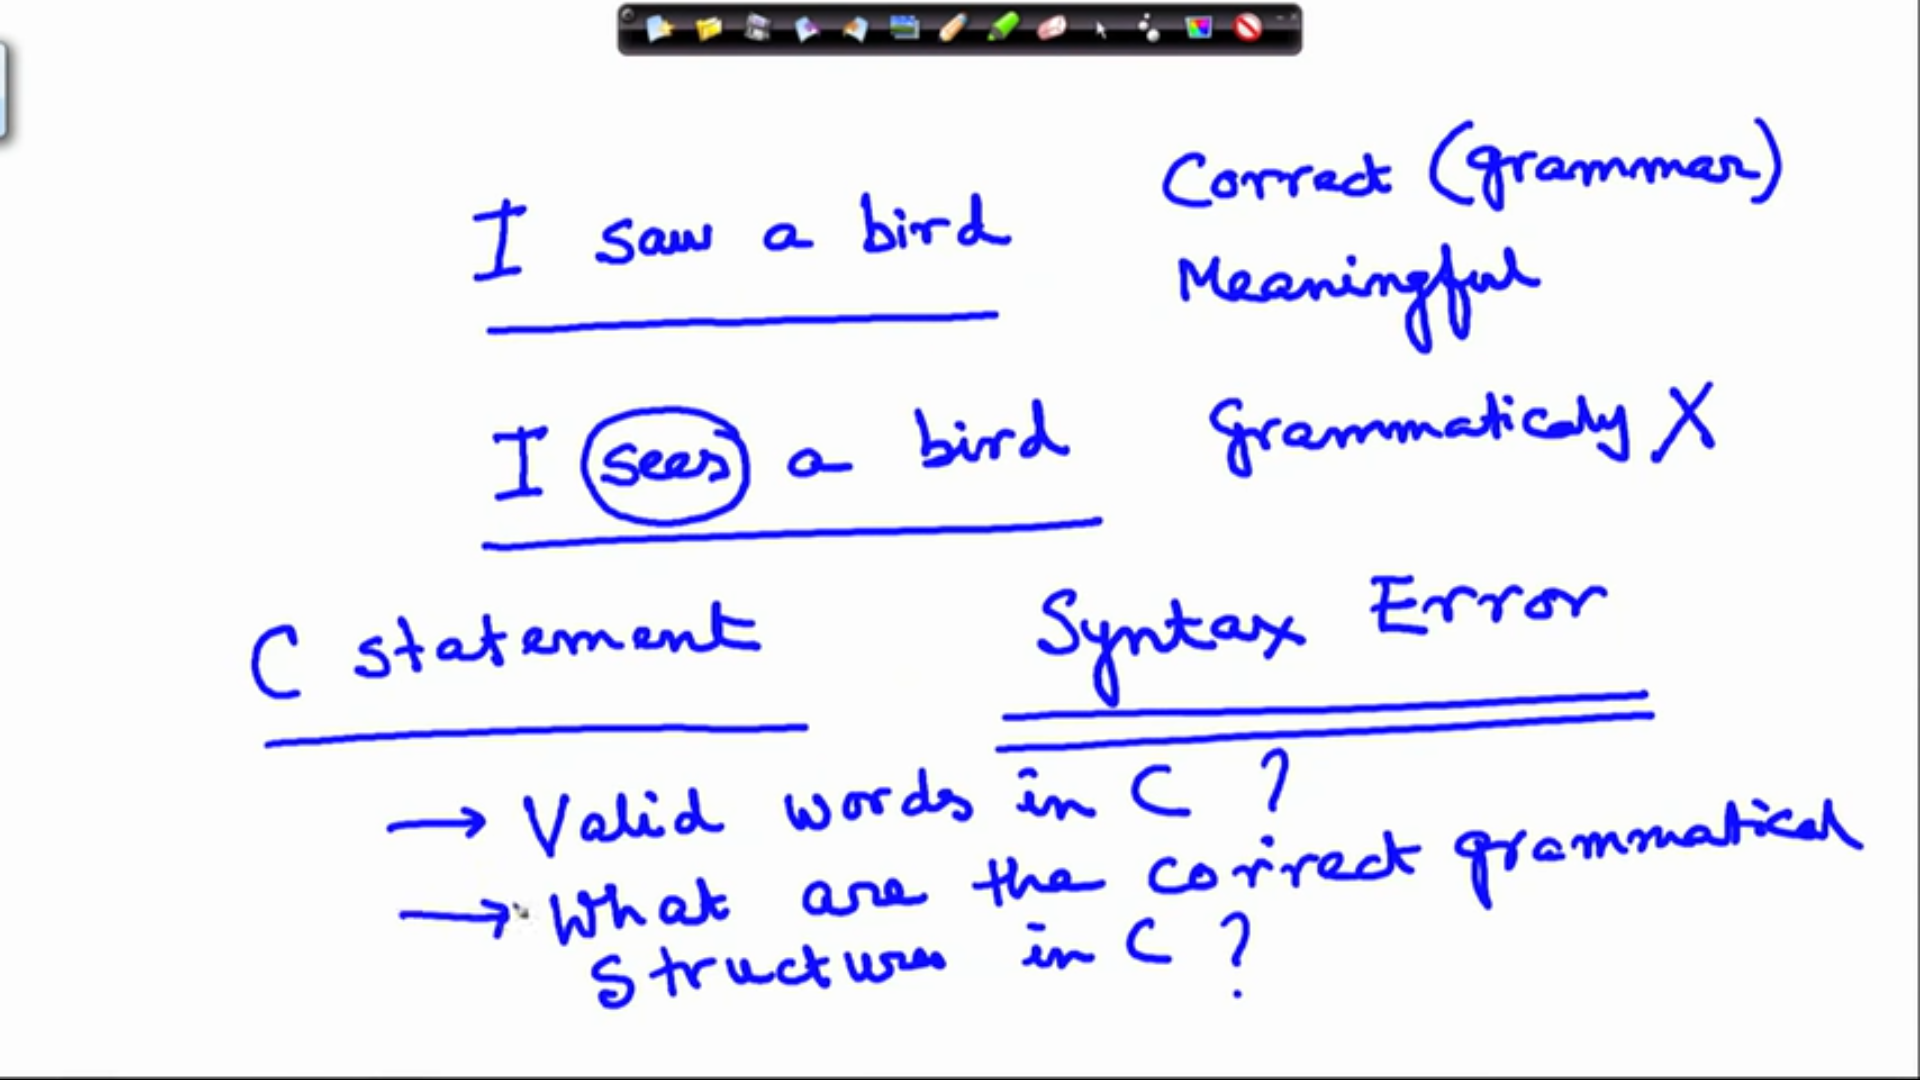 I saw a bird Correct (grammar)
Meaningful
I sees a bird Grammaticaly X
C statement Syntax Error
→ Valid words in C ?
→ What are the correct grammatical
structures in C ?